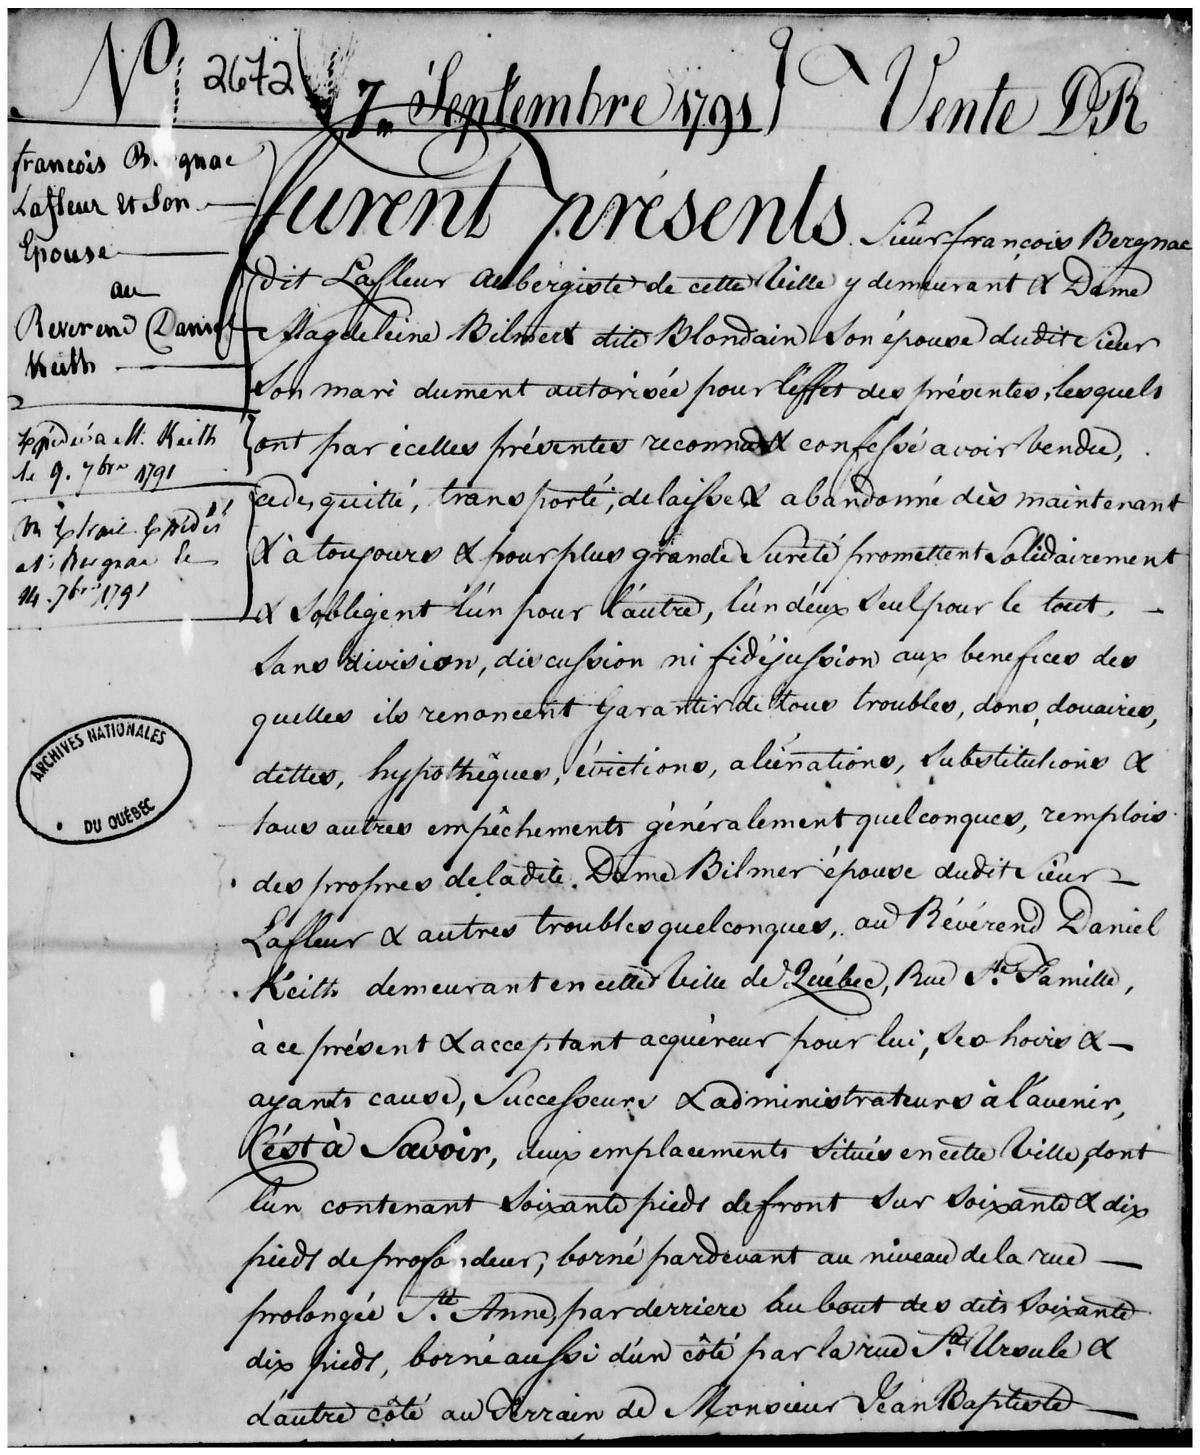 No. 2672
7 Septembre 1791
Vente DR
francois Bergnac
Lafleur et Son
Epouse
au
Reverend Daniel
Keith
Expédié a M. Keith
le 9. 7bre 1791
Un Extrait Expédié
a M. Bergnac le
14. 7bre 1791
ARCHIVES NATIONALES
DU QUÉBEC
furent présents Sieur françois Bergnac
dit Lafleur aubergiste de cette Ville y demeurant & Dame
Magdeleine Bilmer dite Blondain Son épouse dudit Sieur
Son mari dument autorisée pour l'éffet des présentes, lesquels
ont par icelles présentes reconnu & confessé avoir vendu,
cedé, quitté, transporté, delaissé & abandonné dès maintenant
& à toujours & pour plus grande Sureté promettent Solidairement
& S'obligent l'un pour l'autre, l'un d'eux Seul pour le tout,
Sans division, discussion ni fidéjussion aux benefices des
quelles ils renoncent Garantir de tous troubles, dons, douaires,
dettes, hypothèques, évictions, aliénations, Substitutions &
tous autres empêchements généralement quelconques, remplois
des propres de ladite Dame Bilmer épouse dudit Sieur
Lafleur & autres troubles quelconques, au Révérend Daniel
Keith demeurant en cette Ville de Québec, Rue Ste. Famille,
à ce présent & acceptant acquéreur pour lui, Ses hoirs &
ayants cause, Successeurs & administrateurs à l'avenir,
C'est à Savoir, deux emplacements Situés en cette Ville, dont
l'un contenant Soixante pieds de front Sur Soixante & dix
pieds de profondeur, borné pardevant au niveau de la rue
prolongée Ste. Anne, par derriere au bout des dits Soixante
dix pieds, borné aussi d'un côté par la rue Ste. Ursule &
d'autre côté au Terrain de Monsieur Jean Baptiste